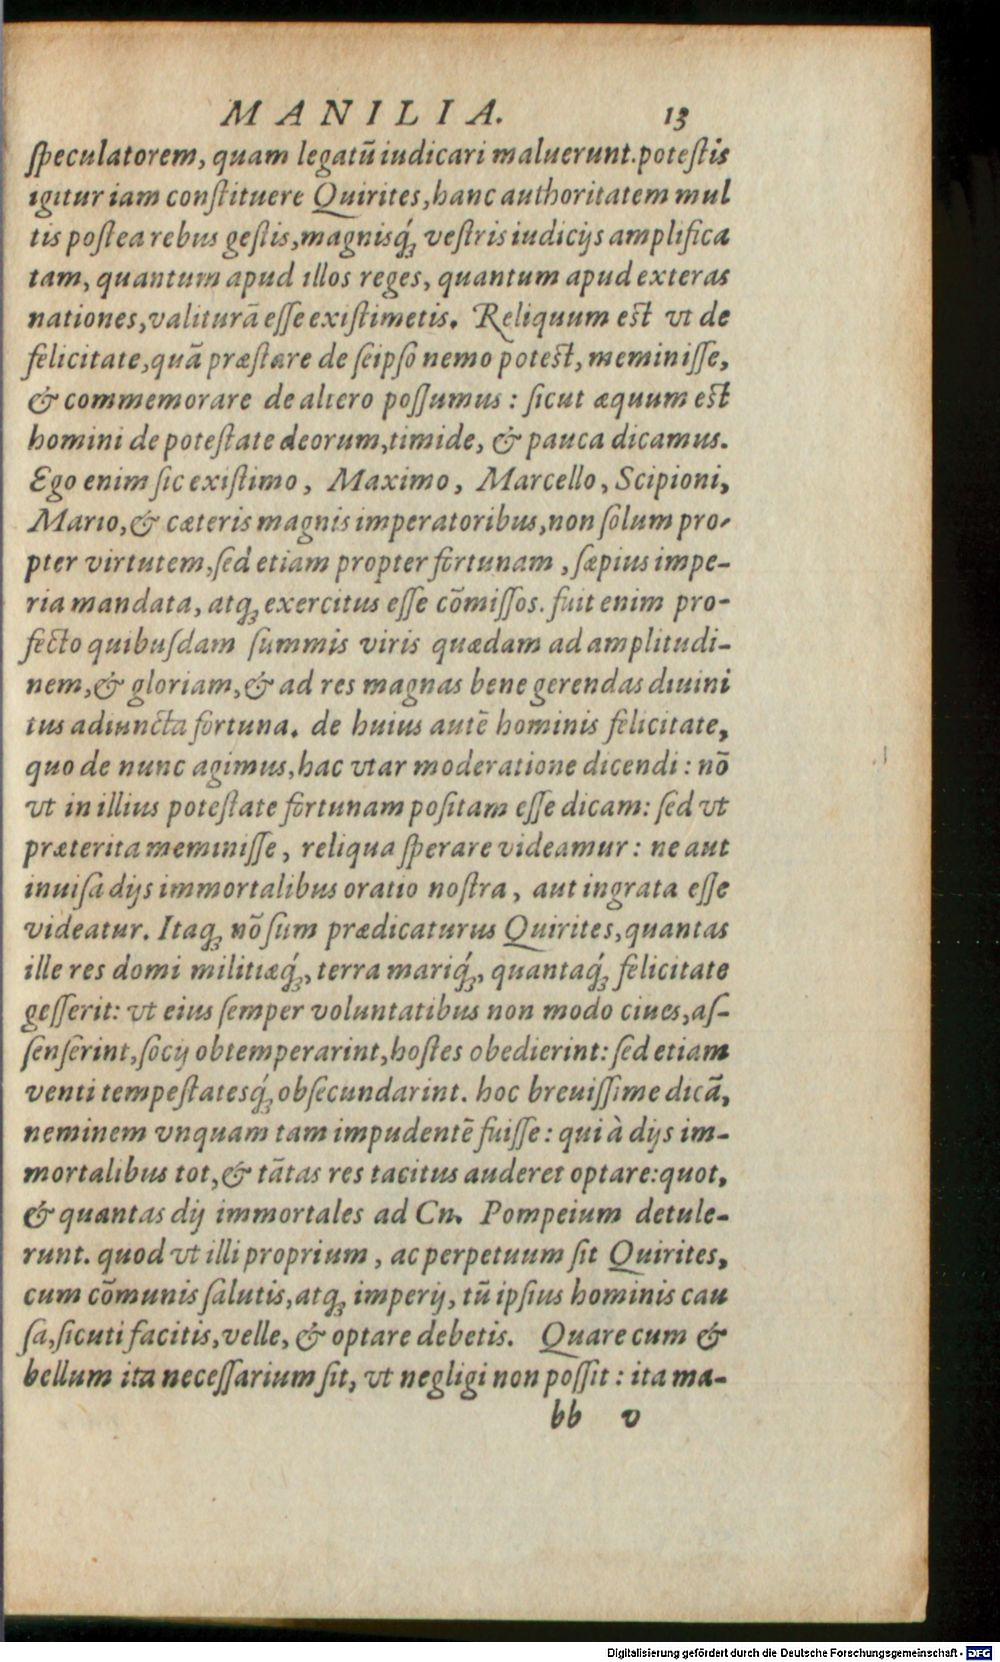 MANILIA. 13
ſpeculatorem, quam legatū iudicari maluerunt. poteſtis
igitur iam conſtituere Quirites, hanc authoritatem mul
tis poſtea rebus geſtis, magnisq́ꝫ veſtris iudicijs amplifica
tam, quantum apud illos reges, quantum apud exteras
nationes, valiturā eſſe exiſtimetis. Reliquum eſt vt de
felicitate, quā præſtare de ſeipſo nemo poteſt, meminiſſe,
& commemorare de altero poſſumus : ſicut æquum eſt
homini de poteſtate deorum, timide, & pauca dicamus.
Ego enim ſic exiſtimo, Maximo, Marcello, Scipioni,
Mario, & cæteris magnis imperatoribus, non ſolum pro-
pter virtutem, ſed etiam propter fortunam, ſæpius impe-
ria mandata, atqꝫ exercitus eſſe cōmiſſos. fuit enim pro-
fecto quibuſdam ſummis viris quædam ad amplitudi-
nem, & gloriam, & ad res magnas bene gerendas diuini
tus adiuncta fortuna. de huius autē hominis felicitate,
quo de nunc agimus, hac vtar moderatione dicendi : nō
vt in illius poteſtate fortunam poſitam eſſe dicam: ſed vt
præterita meminiſſe, reliqua ſperare videamur : ne aut
inuiſa dijs immortalibus oratio noſtra, aut ingrata eſſe
videatur. Itaqꝫ nō ſum prædicaturus Quirites, quantas
ille res domi militiæq́ꝫ, terra mariq́ꝫ, quantaq́ꝫ felicitate
geſſerit: vt eius ſemper voluntatibus non modo ciues, aſ-
ſenſerint, ſocij obtemperarint, hoſtes obedierint: ſed etiam
venti tempeſtatesq́ꝫ obſecundarint. hoc breuiſſime dicā,
neminem vnquam tam impudentē fuiſſe : qui à dijs im-
mortalibus tot, & tātas res tacitus auderet optare: quot,
& quantas dij immortales ad Cn. Pompeium detule-
runt. quod vt illi proprium, ac perpetuum ſit Quirites,
cum cōmunis ſalutis, atqꝫ imperij, tū ipſius hominis cau
ſa, ſicuti facitis, velle, & optare debetis. Quare cum &
bellum ita neceſſarium ſit, vt negligi non poſſit : ita ma-
bb v
Digitalisierung gefördert durch die Deutsche Forschungsgemeinschaft - DFG